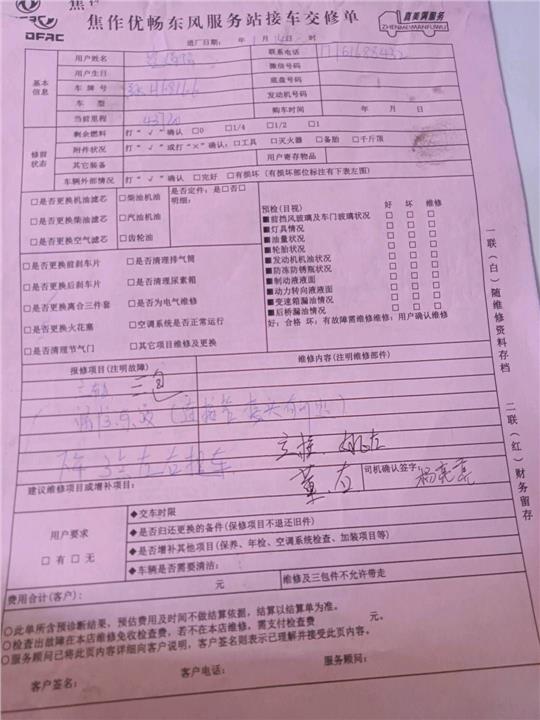 焦作优畅东风服务站接车交修单
DFAC
真美满服务
ZHENMEIMANFUWU
进厂日期： 年 月 日- 时
基本信息
用户姓名
联系电话
用户生日
微信号码
车牌号
底盘号码
车型
发动机号码
当前里程
购车时间 年 月 日
修前状态
剩余燃料 打“√”确认 □0 □1/4 □1/2 □1
附件状况 打“√”或打“×”确认：□工具 □灭火器 □备胎 □千斤顶
其它装备
用户寄存物品
车辆外部情况 打“√”确认 □完好 □有损坏（有损坏部位标注有下表左图）
□是否更换机油滤芯 □柴油机油
是否定件：是□否□
明细：
□是否更换柴油滤芯 □汽油机油
□是否更换空气滤芯 □齿轮油
□是否更换前刹车片 □是否清理排气筒
□是否更换后刹车片 □是否清理尿素箱
□是否更换离合三件套 □是否为电气维修
□是否更换火花塞 □空调系统是否正常运行
□是否清理节气门 □其它项目维修及更换
预检(目视) 好 坏 维修
■前挡风玻璃及车门玻璃状况 □ □ □
■灯具情况 □ □ □
■油量状况 □ □ □
■轮胎状况 □ □ □
■发动机机油状况 □ □ □
■防冻防锈瓶状况 □ □ □
■制动液液面 □ □ □
■动力转向液液面 □ □ □
■变速箱漏油情况 □ □ □
■后桥漏油情况 □ □ □
好：合格 坏：有故障需维修维修：用户确认维修
报修项目(注明故障)
维修内容(注明维修部件)
三包
建议维修项目或增补项目：
司机确认签字：
杨亮亮
用户要求
□有□无
◆交车时限
◆是否归还更换的备件(保修项目不退还旧件)
◆是否增补其他项目(保养、年检、空调系统检查、加装项目等)
◆车辆是否需要清洁：
费用合计(客户)： 元
维修及三包件不允许带走
○此单所含预诊断结果，预估费用及时间不做结算依据，结算以结算单为准。
○检查出故障在本店维修免收检查费，若不在本店维修，需支付检查费 元。
○服务顾问已将此页内容详细向客户说明，客户签名则表示已理解并接受此页内容。
客户签名： 客户电话： 服务顾问：
一联（白）随维修资料存档
二联（红）财务留存